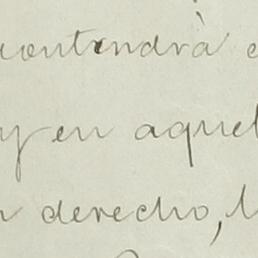 contendrà
y en aquel
derecho,